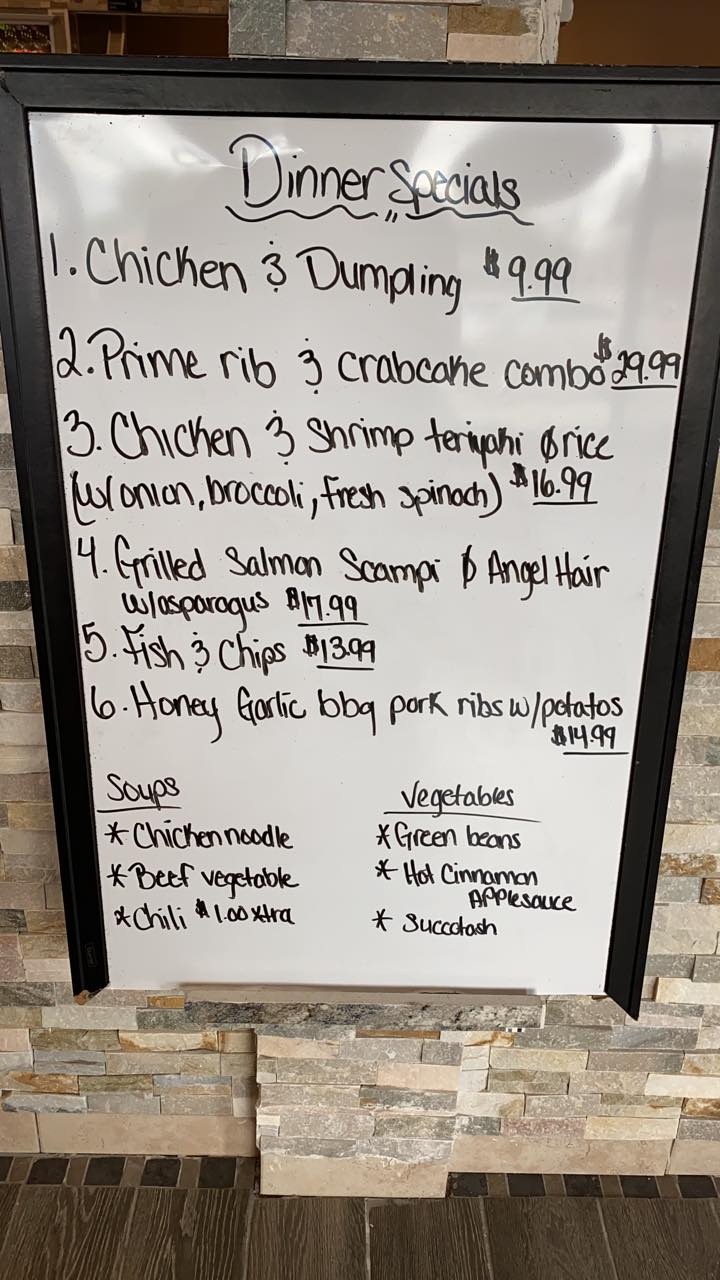 Dinner Specials
1. Chicken & Dumpling $9.99
2. Prime rib & crabcake combo $29.99
3. Chicken & Shrimp teriyaki ∅ rice
(w/onion, broccoli, fresh spinach) $16.99
4. Grilled Salmon Scampi ∅ Angel Hair
w/asparagus $17.99
5. Fish & Chips $13.99
6. Honey Garlic bbq pork ribs w/potatos
$14.99
Soups
* Chicken noodle
* Beef vegetable
* Chili $1.00 xtra
Vegetables
* Green beans
* Hot Cinnamon
Applesauce
* Succotash